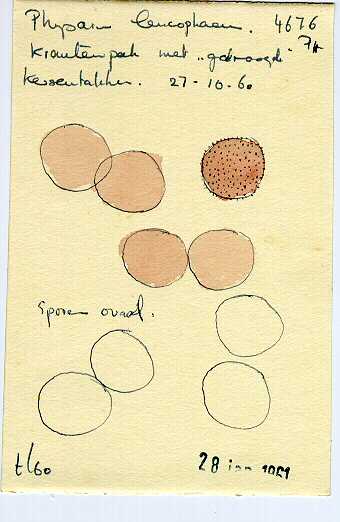 Physarum leucophaeum. 4676
Krantenpak met „gedroogde"
Kersentakken. 27-10-60
Sporen ovaal.
t/60
28 jan 1961